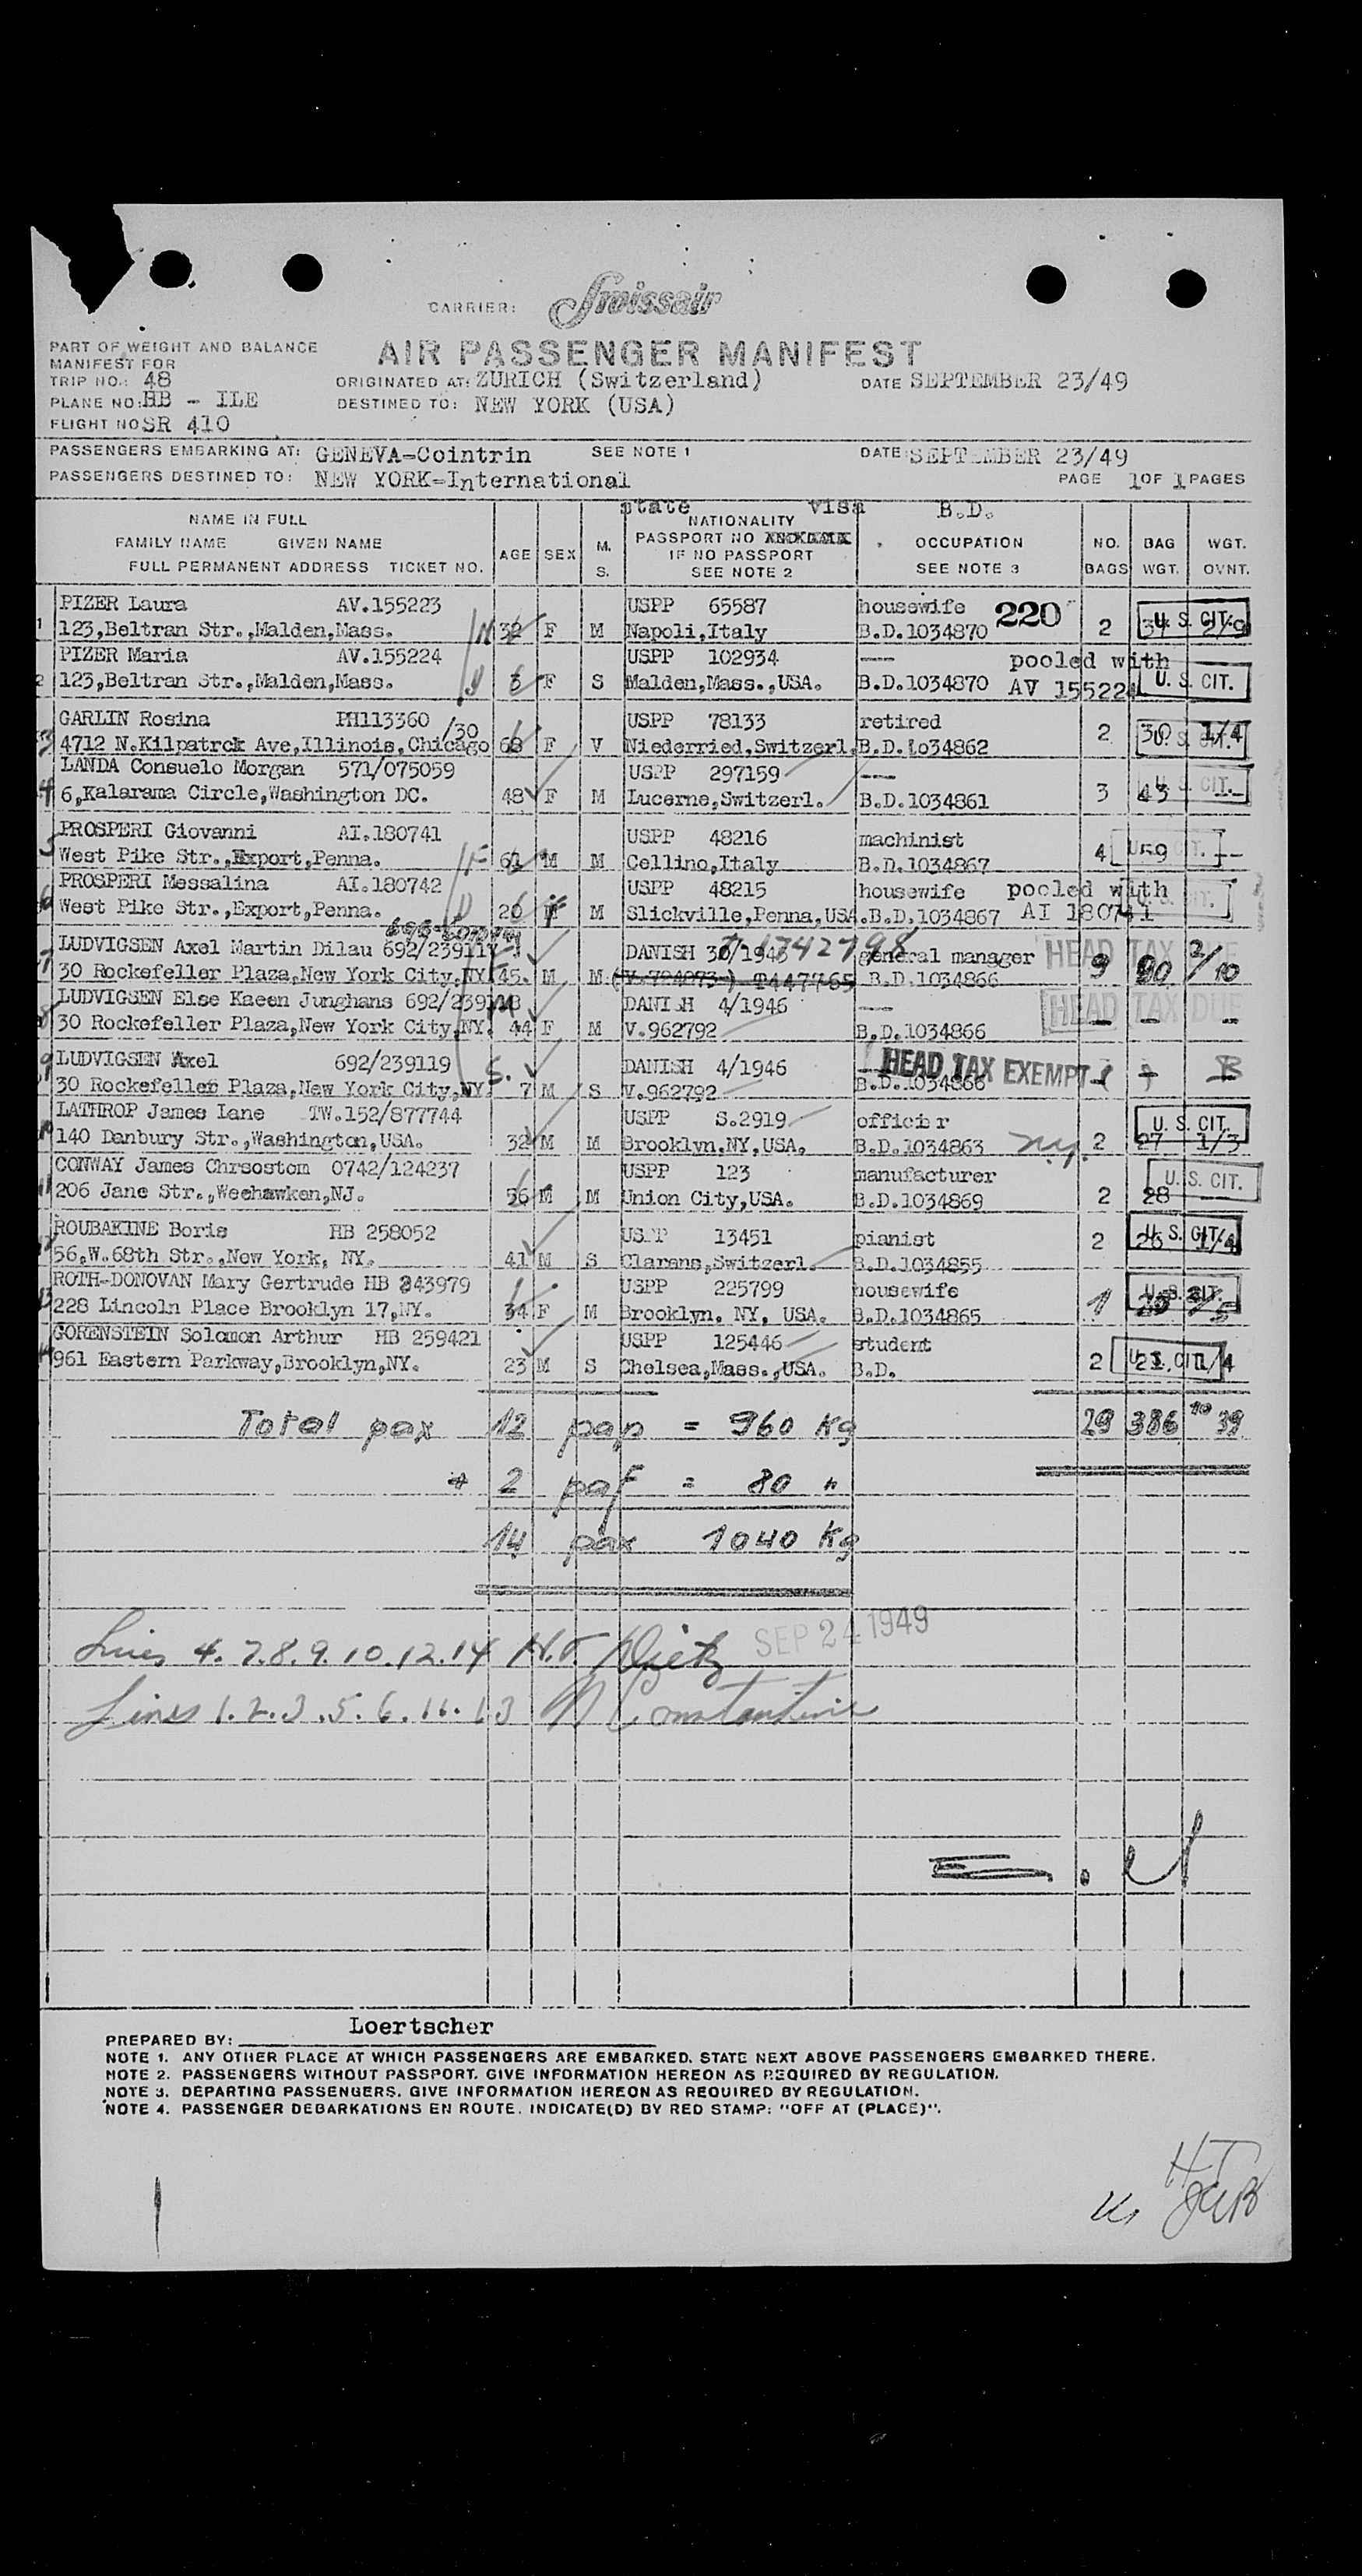 CARRIER: Swissair
PART OF WEIGHT AND BALANCE
MANIFEST FOR
AIR PASSENGER MANIFEST
TRIP NO.: 48
ORIGINATED AT: ZURICH (Switzerland)
DATE SEPTEMBER 23/49
PLANE NO: HB - ILE
DESTINED TO: NEW YORK (USA)
FLIGHT NO SR 410
PASSENGERS EMBARKING AT: GENEVA-Cointrin
SEE NOTE 1
DATE: SEPTEMBER 23/49
PASSENGERS DESTINED TO: NEW YORK-International
PAGE 1 OF 1 PAGES
state visa B.D.
NAME IN FULL
NATIONALITY
FAMILY NAME GIVEN NAME
AGE SEX M. S.
PASSPORT NO
OCCUPATION
NO. BAGS
BAG WGT.
WGT. OVNT.
FULL PERMANENT ADDRESS TICKET NO.
IF NO PASSPORT
SEE NOTE 2
SEE NOTE 3
1 PIZER Laura AV.155223 USPP 65587 housewife 220
123,Beltran Str.,Malden,Mass. 32 F M Napoli,Italy B.D.1034870 2 U. S. CIT.
2 PIZER Maria AV.155224 USPP 102934 --- pooled with
123,Beltran Str.,Malden,Mass. F S Malden,Mass.,USA. B.D.1034870 AV 15522 U. S. CIT.
3 GARLIN Rosina PH113360 /30 USPP 78133 retired
4712 N.Kilpatrck Ave,Illinois,Chicago 68 F V Niederried,Switzerl. B.D.1o34862 2 30 1/4 U. S. CIT.
4 LANDA Consuelo Morgan 571/075059 USPP 297159 ---
6,Kalarama Circle,Washington DC. 48 F M Lucerne,Switzerl. B.D.1034861 3 43 U. S. CIT.
5 PROSPERI Giovanni AI.180741 USPP 48216 machinist
West Pike Str.,Export,Penna. M M Cellino,Italy B.D.1034867 4 59
6 PROSPERI Messalina AI.180742 USPP 48215 housewife pooled with
West Pike Str.,Export,Penna. 26 F M Slickville,Penna,USA. B.D.1034867 AI 180741
7 LUDVIGSEN Axel Martin Dilau 692/239117 DANISH general manager HEAD TAX DUE
30 Rockefeller Plaza,New York City,NY 45. M M T447765 B.D.1034866 9 90 2/10
8 LUDVIGSEN Else Kaeen Junghans 692/239118 DANISH 4/1946 --- HEAD TAX DUE
30 Rockefeller Plaza,New York City,NY. 44 F M V.962792 B.D.1034866 - - -
9 LUDVIGSEN Axel 692/239119 S. DANISH 4/1946 HEAD TAX EXEMPT
30 Rockefeller Plaza,New York City,NY. 7 M S V.962792 B.D.1034866
10 LATHROP James Lane TW.152/877744 USPP S.2919 officier U. S. CIT.
140 Danbury Str.,Washington,USA. 32 M M Brooklyn.NY,USA. B.D.1034863 n.y. 2 27 1/3
11 CONWAY James Chrsostom 0742/124237 USPP 123 manufacturer U. S. CIT.
206 Jane Str.,Weehawken,NJ. 56 M M Union City,USA. B.D.1034869 2 28
12 ROUBAKINE Boris HB 258052 USPP 13451 pianist U. S. CIT.
56,W.68th Str.,New York, NY. 41 M S Clarens,Switzerl. B.D.1034855 2 26 1/4
13 ROTH-DONOVAN Mary Gertrude HB 243979 USPP 225799 housewife U. S. CIT.
228 Lincoln Place Brooklyn 17,NY. 34 F M Brooklyn. NY, USA. B.D.1034865 1
14 GORENSTEIN Solomon Arthur HB 259421 USPP 125446 student
961 Eastern Parkway,Brooklyn,NY. 23 M S Chelsea,Mass.,USA. B.D. 2 U. S. CIT. 1/4
Total pax 12 pap = 960 Kg 29 386 39
+ 2 paf = 80 "
14 pax 1040 Kg
SEP 24 1949
Lines 4. 7. 8. 9. 10. 12. 14 H.T. Dietz
Lines 1. 2. 3. 5. 6. 11. 13 N Constantine
PREPARED BY: Loertscher
NOTE 1. ANY OTHER PLACE AT WHICH PASSENGERS ARE EMBARKED. STATE NEXT ABOVE PASSENGERS EMBARKED THERE.
NOTE 2. PASSENGERS WITHOUT PASSPORT. GIVE INFORMATION HEREON AS REQUIRED BY REGULATION.
NOTE 3. DEPARTING PASSENGERS. GIVE INFORMATION HEREON AS REQUIRED BY REGULATION.
NOTE 4. PASSENGER DEBARKATIONS EN ROUTE. INDICATE(D) BY RED STAMP: "OFF AT (PLACE)".